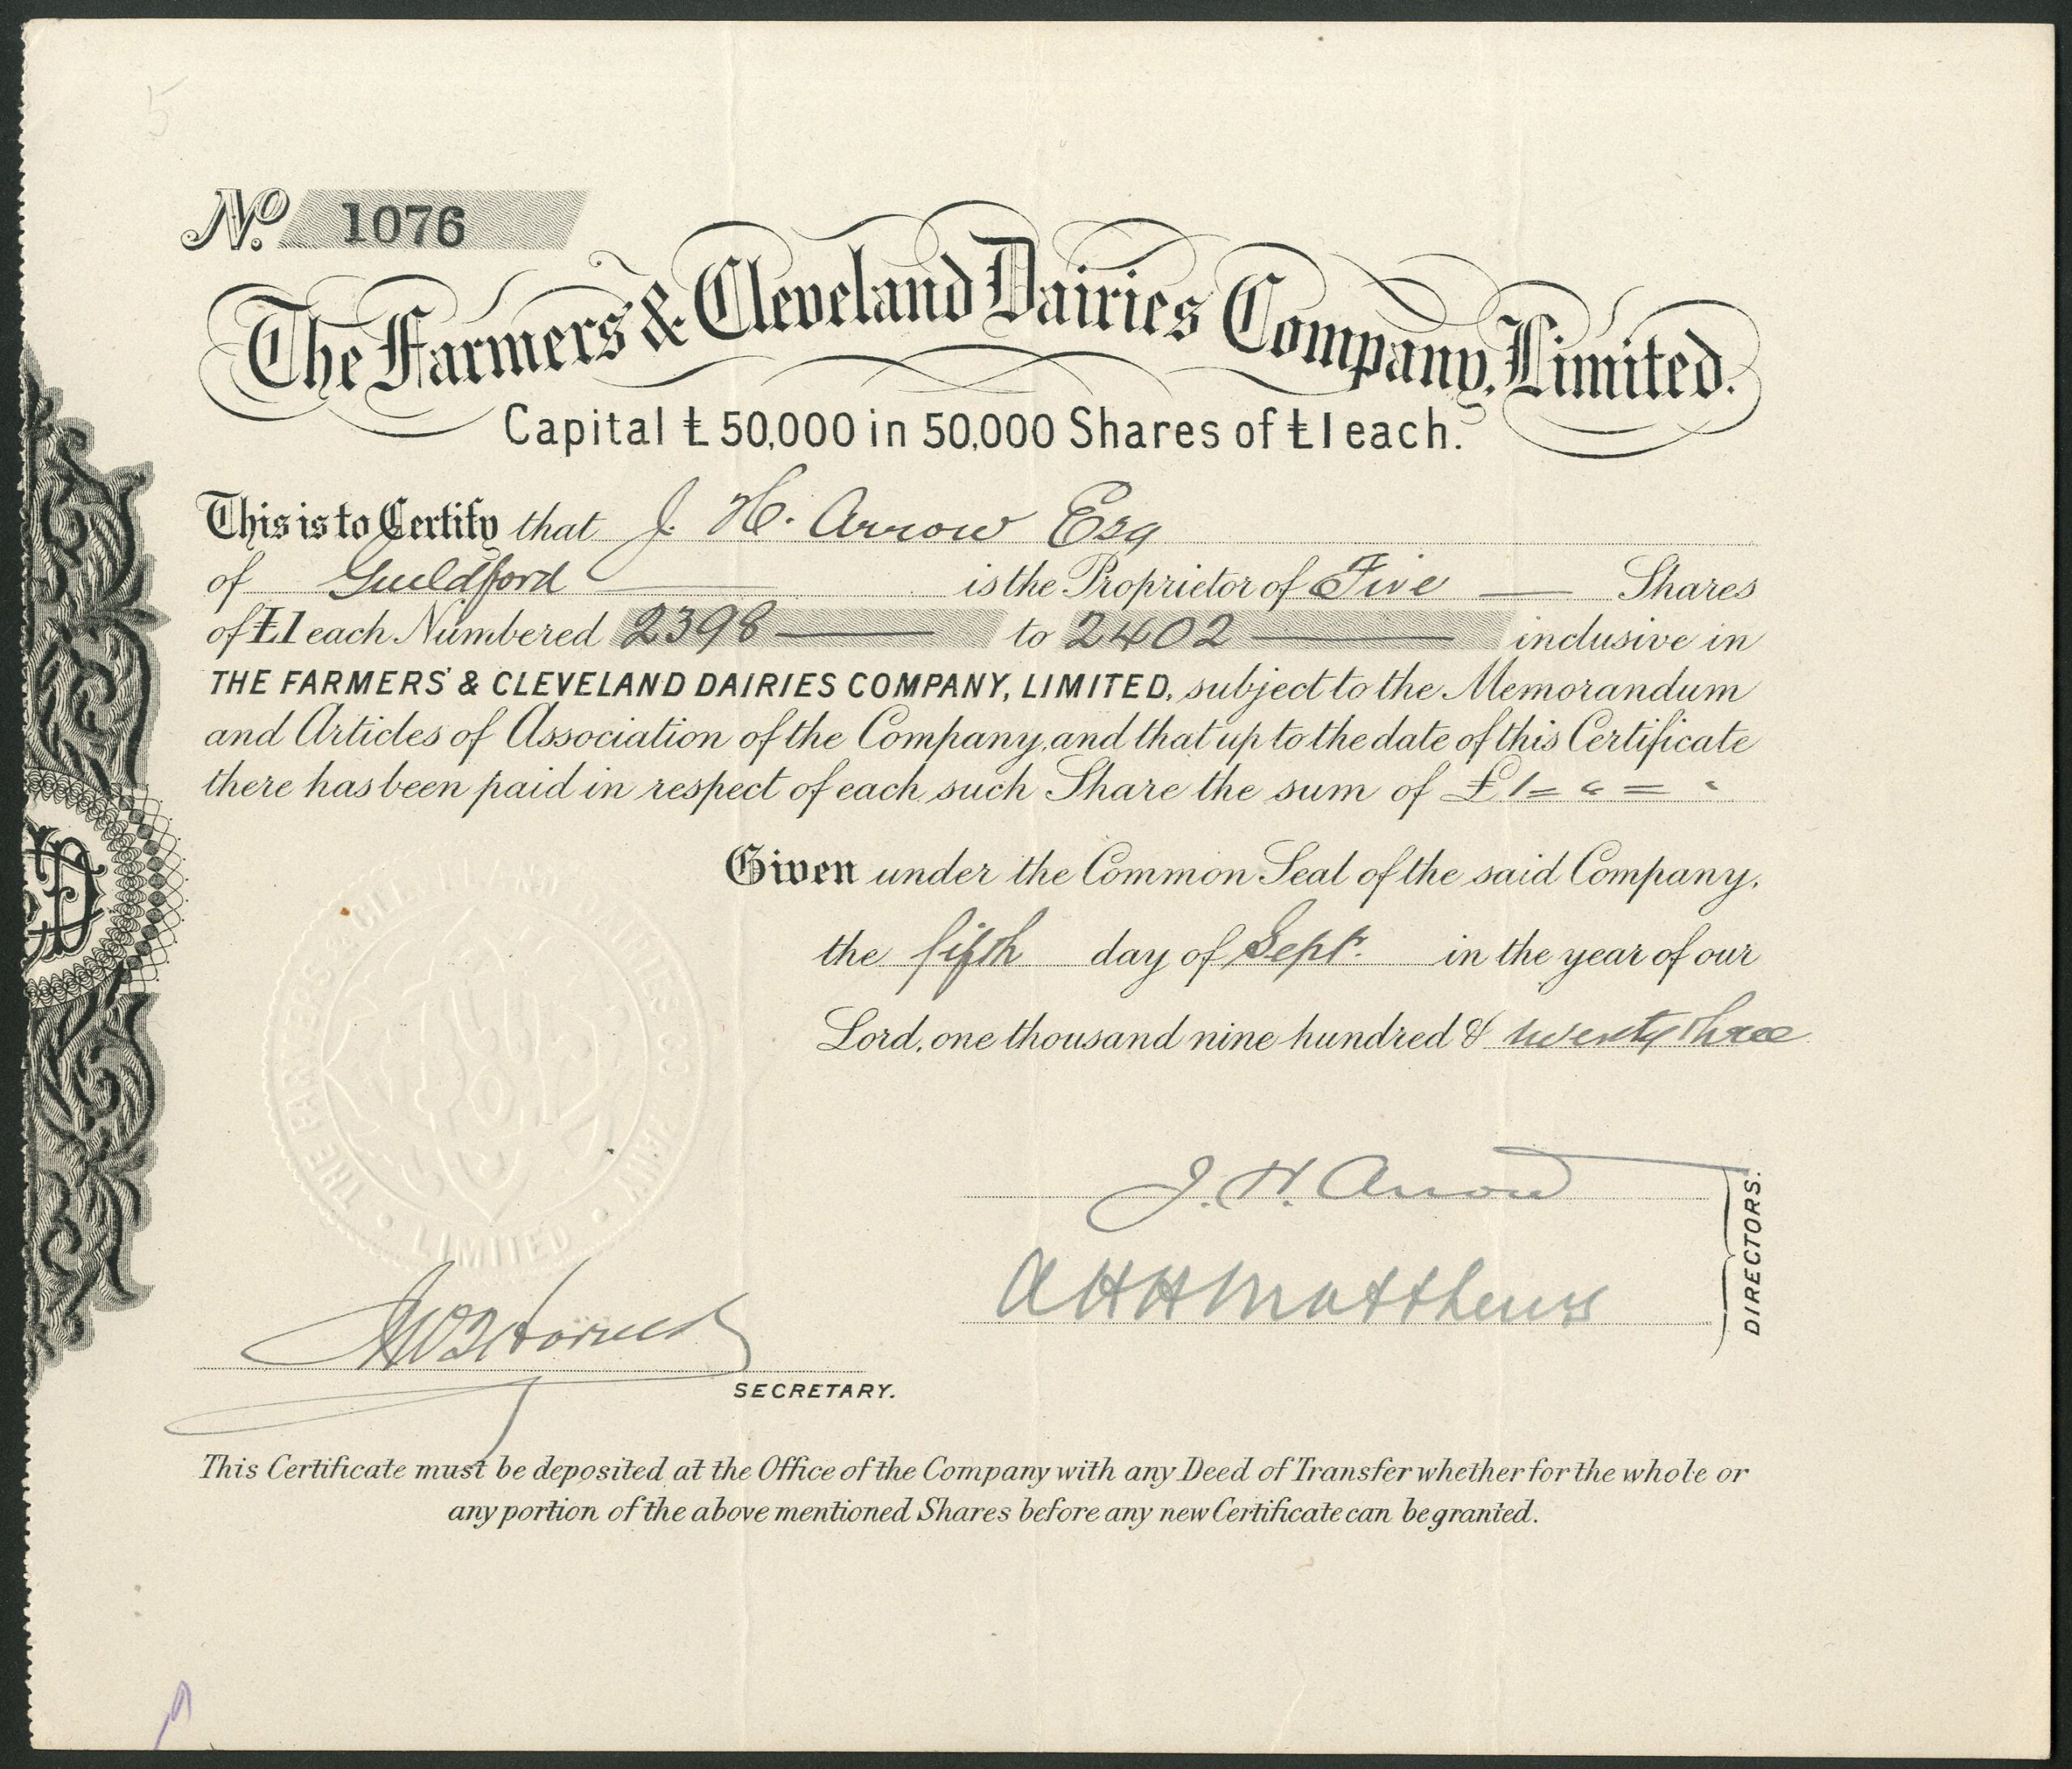 5
No. 1076
The Farmers' & Cleveland Dairies Company, Limited.
Capital £50,000 in 50,000 Shares of £1 each.
This is to Certify that J. H. Arrow Esq
of Guildford is the Proprietor of Five Shares
of £1 each Numbered 2398 to 2402 inclusive in
THE FARMERS' & CLEVELAND DAIRIES COMPANY, LIMITED, subject to the Memorandum
and Articles of Association of the Company, and that up to the date of this Certificate
there has been paid in respect of each such Share the sum of £1
Given under the Common Seal of the said Company,
the fifth day of Sept. in the year of our
Lord, one thousand nine hundred & twenty three
THE FARMERS & CLEVELAND DAIRIES COMPANY LIMITED
J. H. Arrow
A H H Matthews
DIRECTORS.
SECRETARY.
This Certificate must be deposited at the Office of the Company with any Deed of Transfer whether for the whole or
any portion of the above mentioned Shares before any new Certificate can be granted.